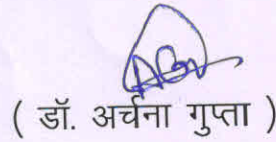 ( डॉ. अर्चना गुप्ता )